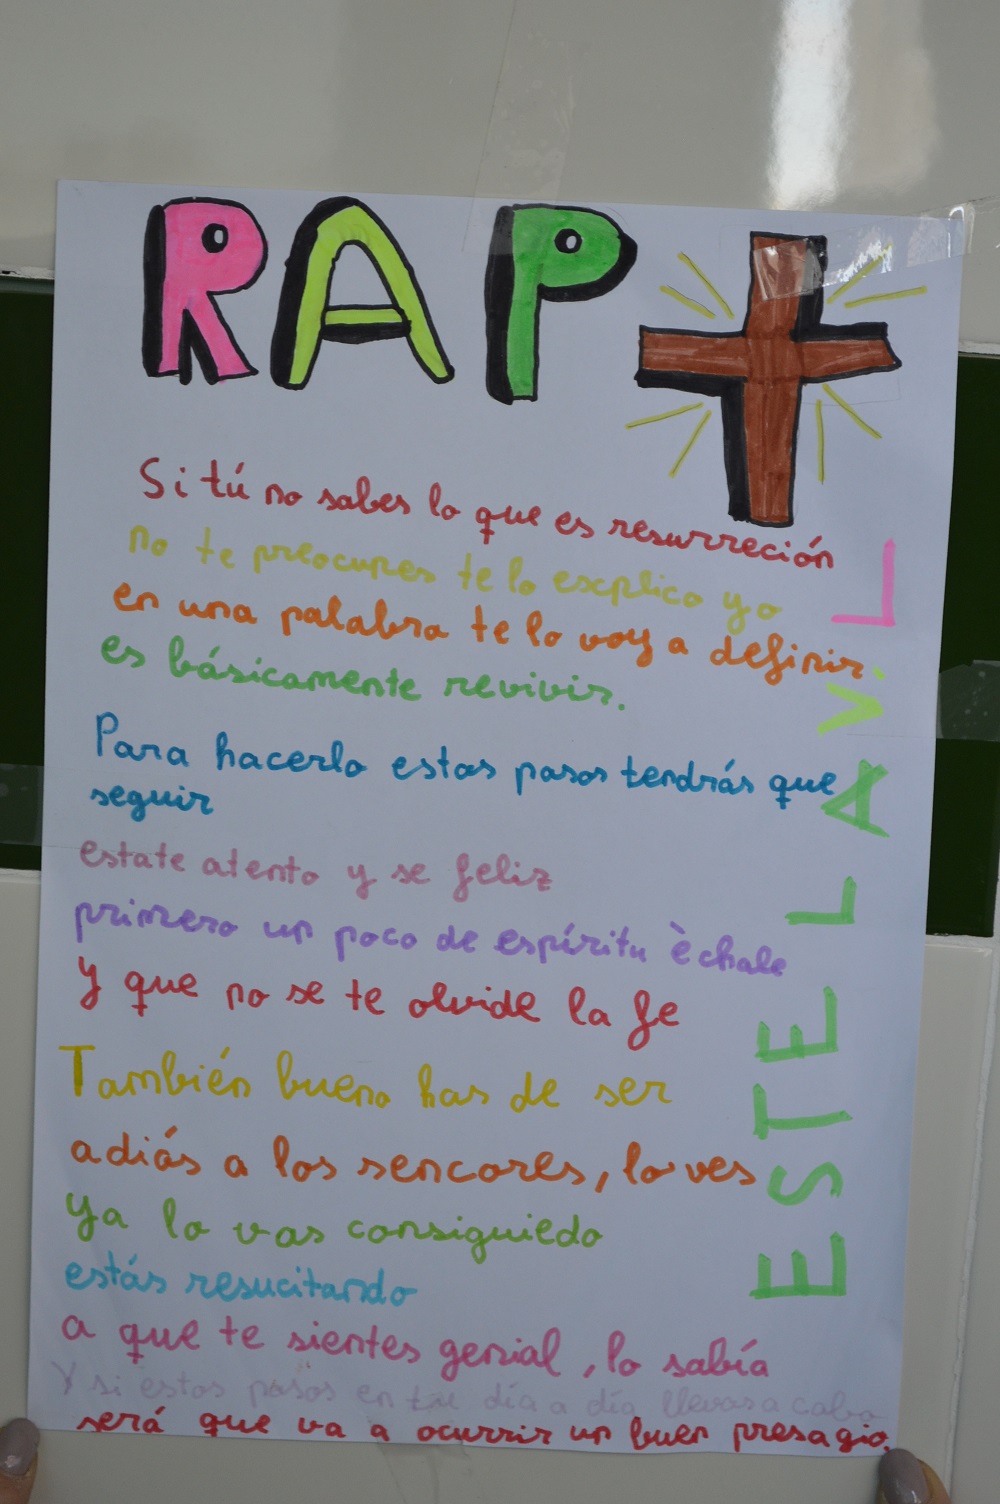 RAP
Si tú no sabes lo que es resurreción
no te preocupes te lo escplico yo
en una palabra te lo voy a definir
es básicamente revivir.
Para hacerlo estos pasos tendrás que
seguir
estate atento y se feliz
primero un poco de espíritu èchale
y que no se te olvide la fe
También bueno has de ser
adiós a los sencores, lo ves
ya lo vas consiguiedo
estás resucitando
a que te sientes genial, lo sabía
Y si estos pasos en tu día a día llevas a cabo
será que va a ocurrir un buen presagio.
ESTELA V. L